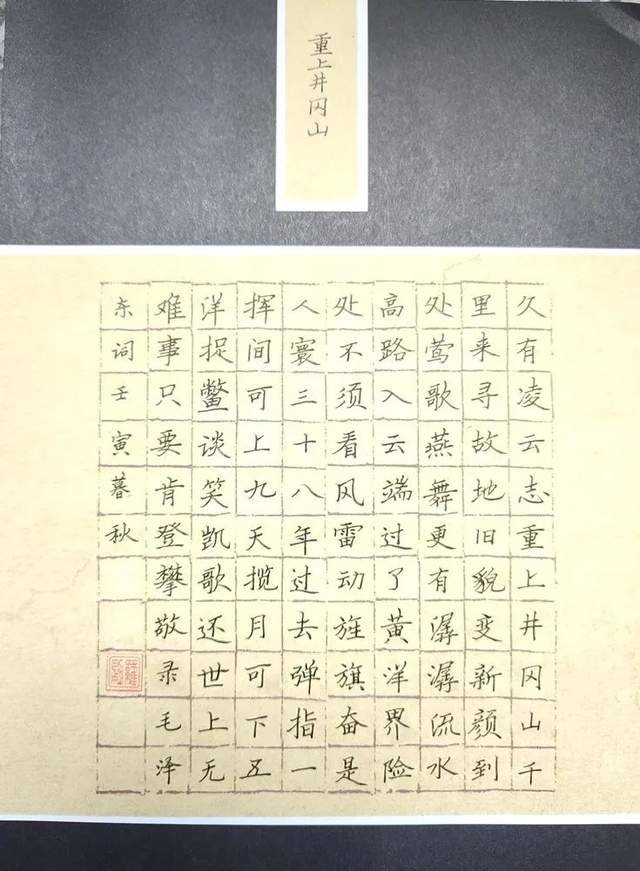 重上井冈山
久有凌云志重上井冈山千
里来寻故地旧貌变新颜到
处莺歌燕舞更有潺潺流水
高路入云端过了黄洋界险
处不须看风雷动旌旗奋是
人寰三十八年过去弹指一
挥间可上九天揽月可下五
洋捉鳖谈笑凯歌还世上无
难事只要肯登攀敬录毛泽
东词壬寅暮秋